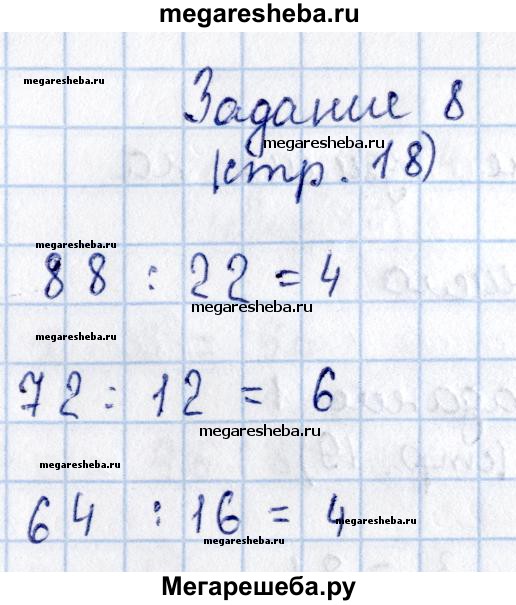 megaresheba.ru
megaresheba.ru
Задание 8
megaresheba.ru
(стр. 18)
megaresheba.ru
88 : 22 = 4
megaresheba.ru
megaresheba.ru
72 : 12 = 6
megaresheba.ru
megaresheba.ru
64 : 16 = 4
megaresheba.ru
megaresheba.ru
Мегарешеба.ру